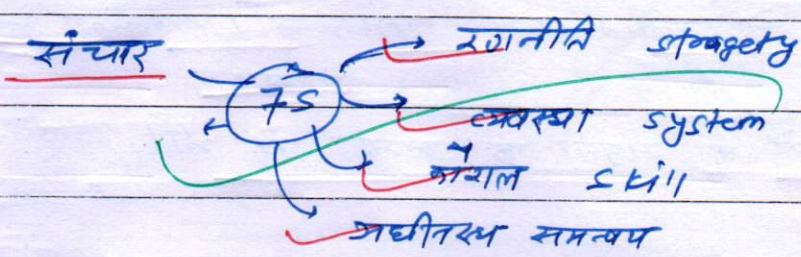 संचार
7S
रणनीति stragety
व्यवस्था system
कौशल skill
अधीनस्थ समन्वय